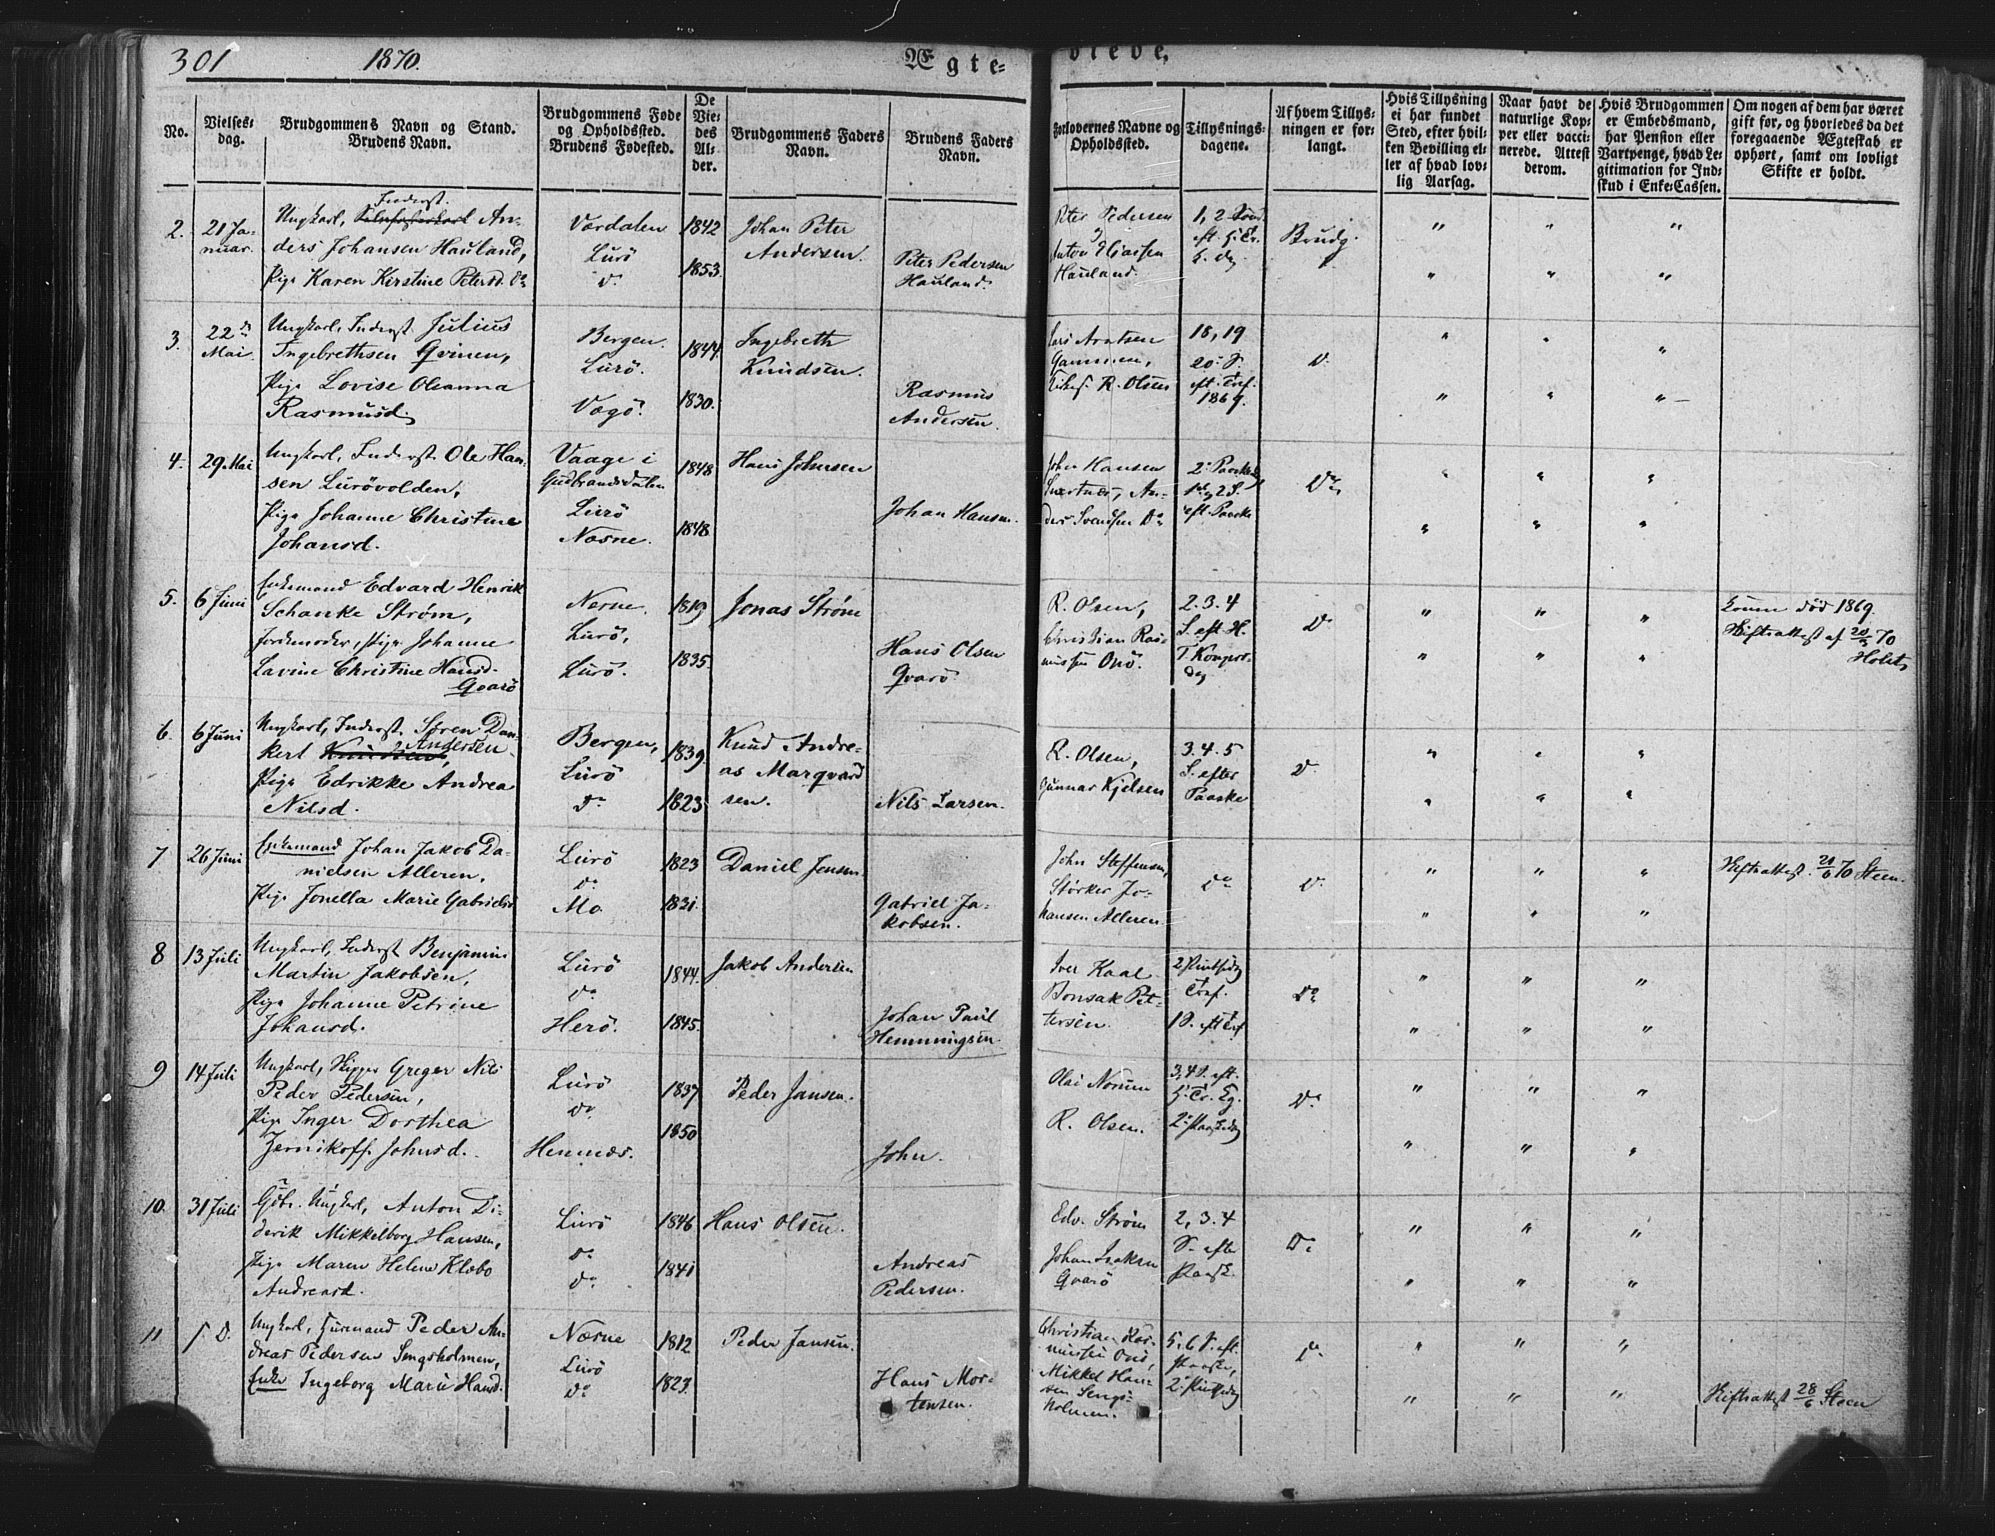 301
1870.
Ægte=
vieve.
No.
Vielses=
dag.
Brudgommens Navn og Stand.
Brudens Navn.
Brudgommens Føde
og Opholdssted.
Brudens Fødested.
De
Vie=
des
Al=
der.
Brudgommens Faders
Navn.
Brudens Faders
Navn.
Forlovernes Navne og
Opholdssted.
Tillysnings=
dagene.
Af hvem Tillys=
ningen er for=
langt.
Hvis Tillysning
ei har fundet
Sted, efter hvil=
ken Bevilling el=
ler af hvad lov=
lig Aarsag.
Naar havt de
naturlige Kop=
per eller vacci=
nerede. Attest
derom.
Hvis Brudgommen
er Embedsmand,
har Pension eller
Vartpenge, hvad Le=
gitimation for Ind=
skud i Enke=Cassen.
Om nogen af dem har været
gift før, og hvorledes da det
foregaaende Ægteskab er
ophørt, samt om lovligt
Skifte er holdt.
2.
21 Ja-
nuar.
Inderst.
Ungkarl, An-
ders Johansen Hauland,
Pige Karen Kirstine Petersd. do
Værdalen
Lurö
do
1842
1853.
Johan Peter
Andersen.
Peter Pedersen
Hauland.
Peter Pedersen
Anton
Hauland.
1, 2 Sönd.
eft. H. Tr.
K. dag
Brudg.
" " "
" " "
3.
22de
Mai.
Ungkarl, Inderst Julius
Ingebrethsen Qvinen,
Pige Lovise Oleanna
Rasmusd.
Bergen.
Lurö.
Vegö.
1844.
1830.
Ingebreth
Knudsen.
Rasmus
Andersen.
Lars Arntsen
Gammen,
R. Olsen
18, 19
20de S.
eft. Tref.
1869.
Do
" " "
" " " —
4.
29. Mai
Ungkarl, Inderst Ole Han-
sen Lurövolden,
Pige Johanne Christine
Johansd.
Vaage i
Gudbrandsdalen
Lurö
Næsne.
1848
1848.
Hans Johnsen
Johan Hansen.
John Hansen
An-
ders Svendsen Do
2. Paaskedag
1ste, 2 S.
eft. Paaske
Do
" " "
" " "
5.
6 Juni
Enkemand Edvard Henrik
Schanke Strøm,
Jordemoder, Pige Johanne
Lavine Christine Hansd.
Qvarö
Nesne.
Lurö,
Lurö.
1819
1835.
Jonas Strøm
Hans Olsen
Qvarö
R. Olsen,
Christian Ras-
mussen Onö.
2. 3. 4
S. eft. H.
T. Konger-
dag
Do
" " "
" " "
Konen död 1869.
Skifteattest af 20/5 70
Holst,
6.
6 Juni
Ungkarl, Inderst. Sören Dan-
kert Andersen
Pige Edrikke Andrea
Nilsd.
Bergen,
Lurö
do
1839.
1823.
Knud Andre-
as Marqvard-
sen.
Nils Larsen.
R. Olsen,
Gunnar Kjelsen
3. 4. 5
S. efter
Paaske
Do
" " "
" " "
7
26 Juni
Enkemand Johan Jakob Da-
nielsen Alleren,
Pige Jonella Marie Gabrielsd.
Lurö
do
Mo.
1823
1831.
Daniel Jensen
Gabriel Ja-
kobsen.
John Steffensen,
Störker Jo-
hansen Alleren
do
Do
" " "
" " "
Skifteattest. 20/6 70 Steen.
8
13 Juli
Ungkarl, Inderst Benjamin
Martin Jakobsen,
Pige Johanne Petrine
Johansd.
Lurö
do
Herö.
1844.
1845.
Jakob Andersen
Johan Paul
Hemmingsen
Iver Kaal
Bonsak Pet-
tersen.
2 Pintsedag
Tref.
1 S. eft Tref
Do
" " "
" " "
9
14 Juli
Ungkarl, Skipper Greger Nils
Peder Pedersen,
Pige Inger Dorthea
Jernikoff Johnsd.
Lurö
do
Hemnæs.
1837
1850
Peder Jansen.
John.
Olai Norum
R. Olsen.
3, 4 S. eft.
H. Tr. Eg.
2. Paaskedag
Do
" " "
" " "
10.
31 Juli
Gbr. Ungkarl, Anton Di-
derik Mikkelborg Hansen,
Pige Maren Helene Klæbo
Andreasd.
Lurö
do
do
1846
1841
Hans Olsen.
Andreas
Pedersen.
Edv. Strøm
Johan Isaksen
Qvarö
2, 3. 4
S. efter
Paask.
Do
" " "
" " "
11
S. D.
Ungkarl, Huusmand Peder An-
dreas Pedersen Sengsholmen,
Enke Ingeborg Marie Hansd.
Næsne
Lurö
do
1812
1823.
Peder Jansen.
Hans Mor-
tensen.
Christian Ras-
mussen Onö,
Mikkel Han-
sen Sengs-
holmen.
5, 6 S. eft.
Paaske,
2. Pintsedag
Do
" " "
" " "
Skifteattest 28/6 Steen